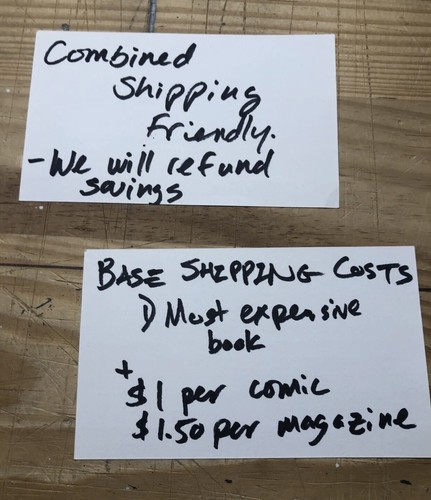 Combined
Shipping
Friendly.
- We will refund
savings
BASE SHIPPING COSTS
1) Most expensive
book
+
$1 per comic
$1.50 per magazine